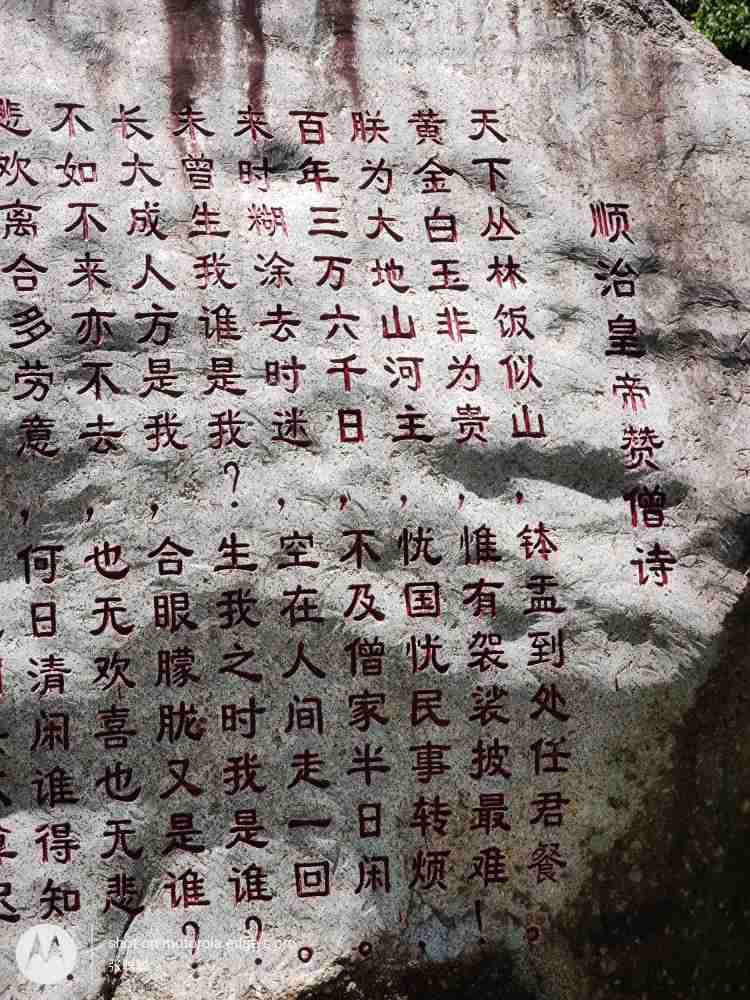 顺治皇帝赞僧诗
天下丛林饭似山，钵盂到处任君餐。
黄金白玉非为贵，惟有袈裟披最难！
朕为大地山河主，忧国忧民事转烦，
百年三万六千日，不及僧家半日闲。
来时糊涂去时迷，空在人间走一回。
未曾生我谁是我？生我之时我是谁？
长大成人方是我，合眼朦胧又是谁？
不如不来亦不去，也无欢喜也无悲
悲欢离合多劳意，何日清闲谁得知
shot on motorola edge s pro